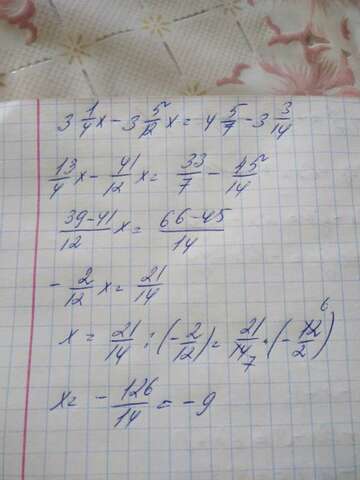 3 1/4 x - 3 5/12 x = 4 5/7 - 3 3/14
13/4 x - 41/12 x = 33/7 - 45/14
39-41/12 x = 66-45/14
- 2/12 x = 21/14
x = 21/14 : (- 2/12) = 21/14 7 · (- 12/2 6)
x = - 126/14 = - 9